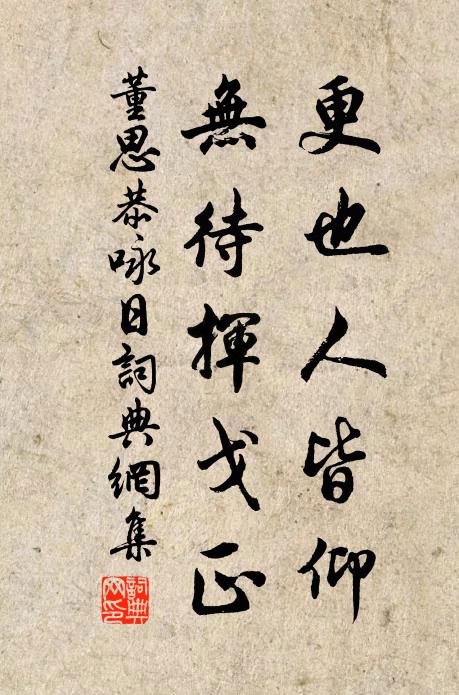 更也人皆仰
無待揮戈正
董思恭咏日詞典網集
詞典網印